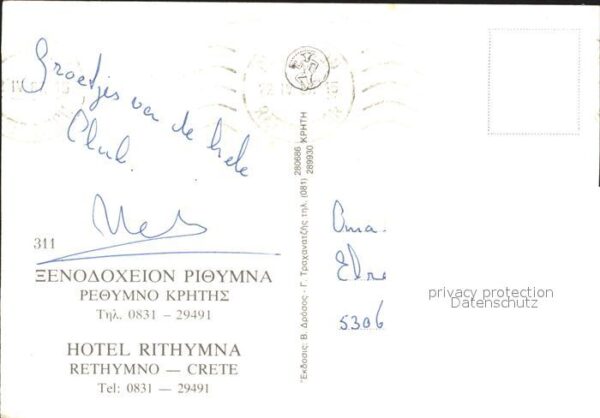 Groetjes van de hele
Club.
311
ΞΕΝΟΔΟΧΕΙΟΝ ΡΙΘΥΜΝΑ
ΡΕΘΥΜΝΟ ΚΡΗΤΗΣ
Τηλ. 0831 – 29491
HOTEL RITHYMNA
RETHYMNO — CRETE
Tel: 0831 – 29491
Ἐκδοσις: Β. Δρόσος - Γ. Τραχανατζῆς τηλ. (081) 280686 ΚΡΗΤΗ
289930
Oma
5306
privacy protection
Datenschutz